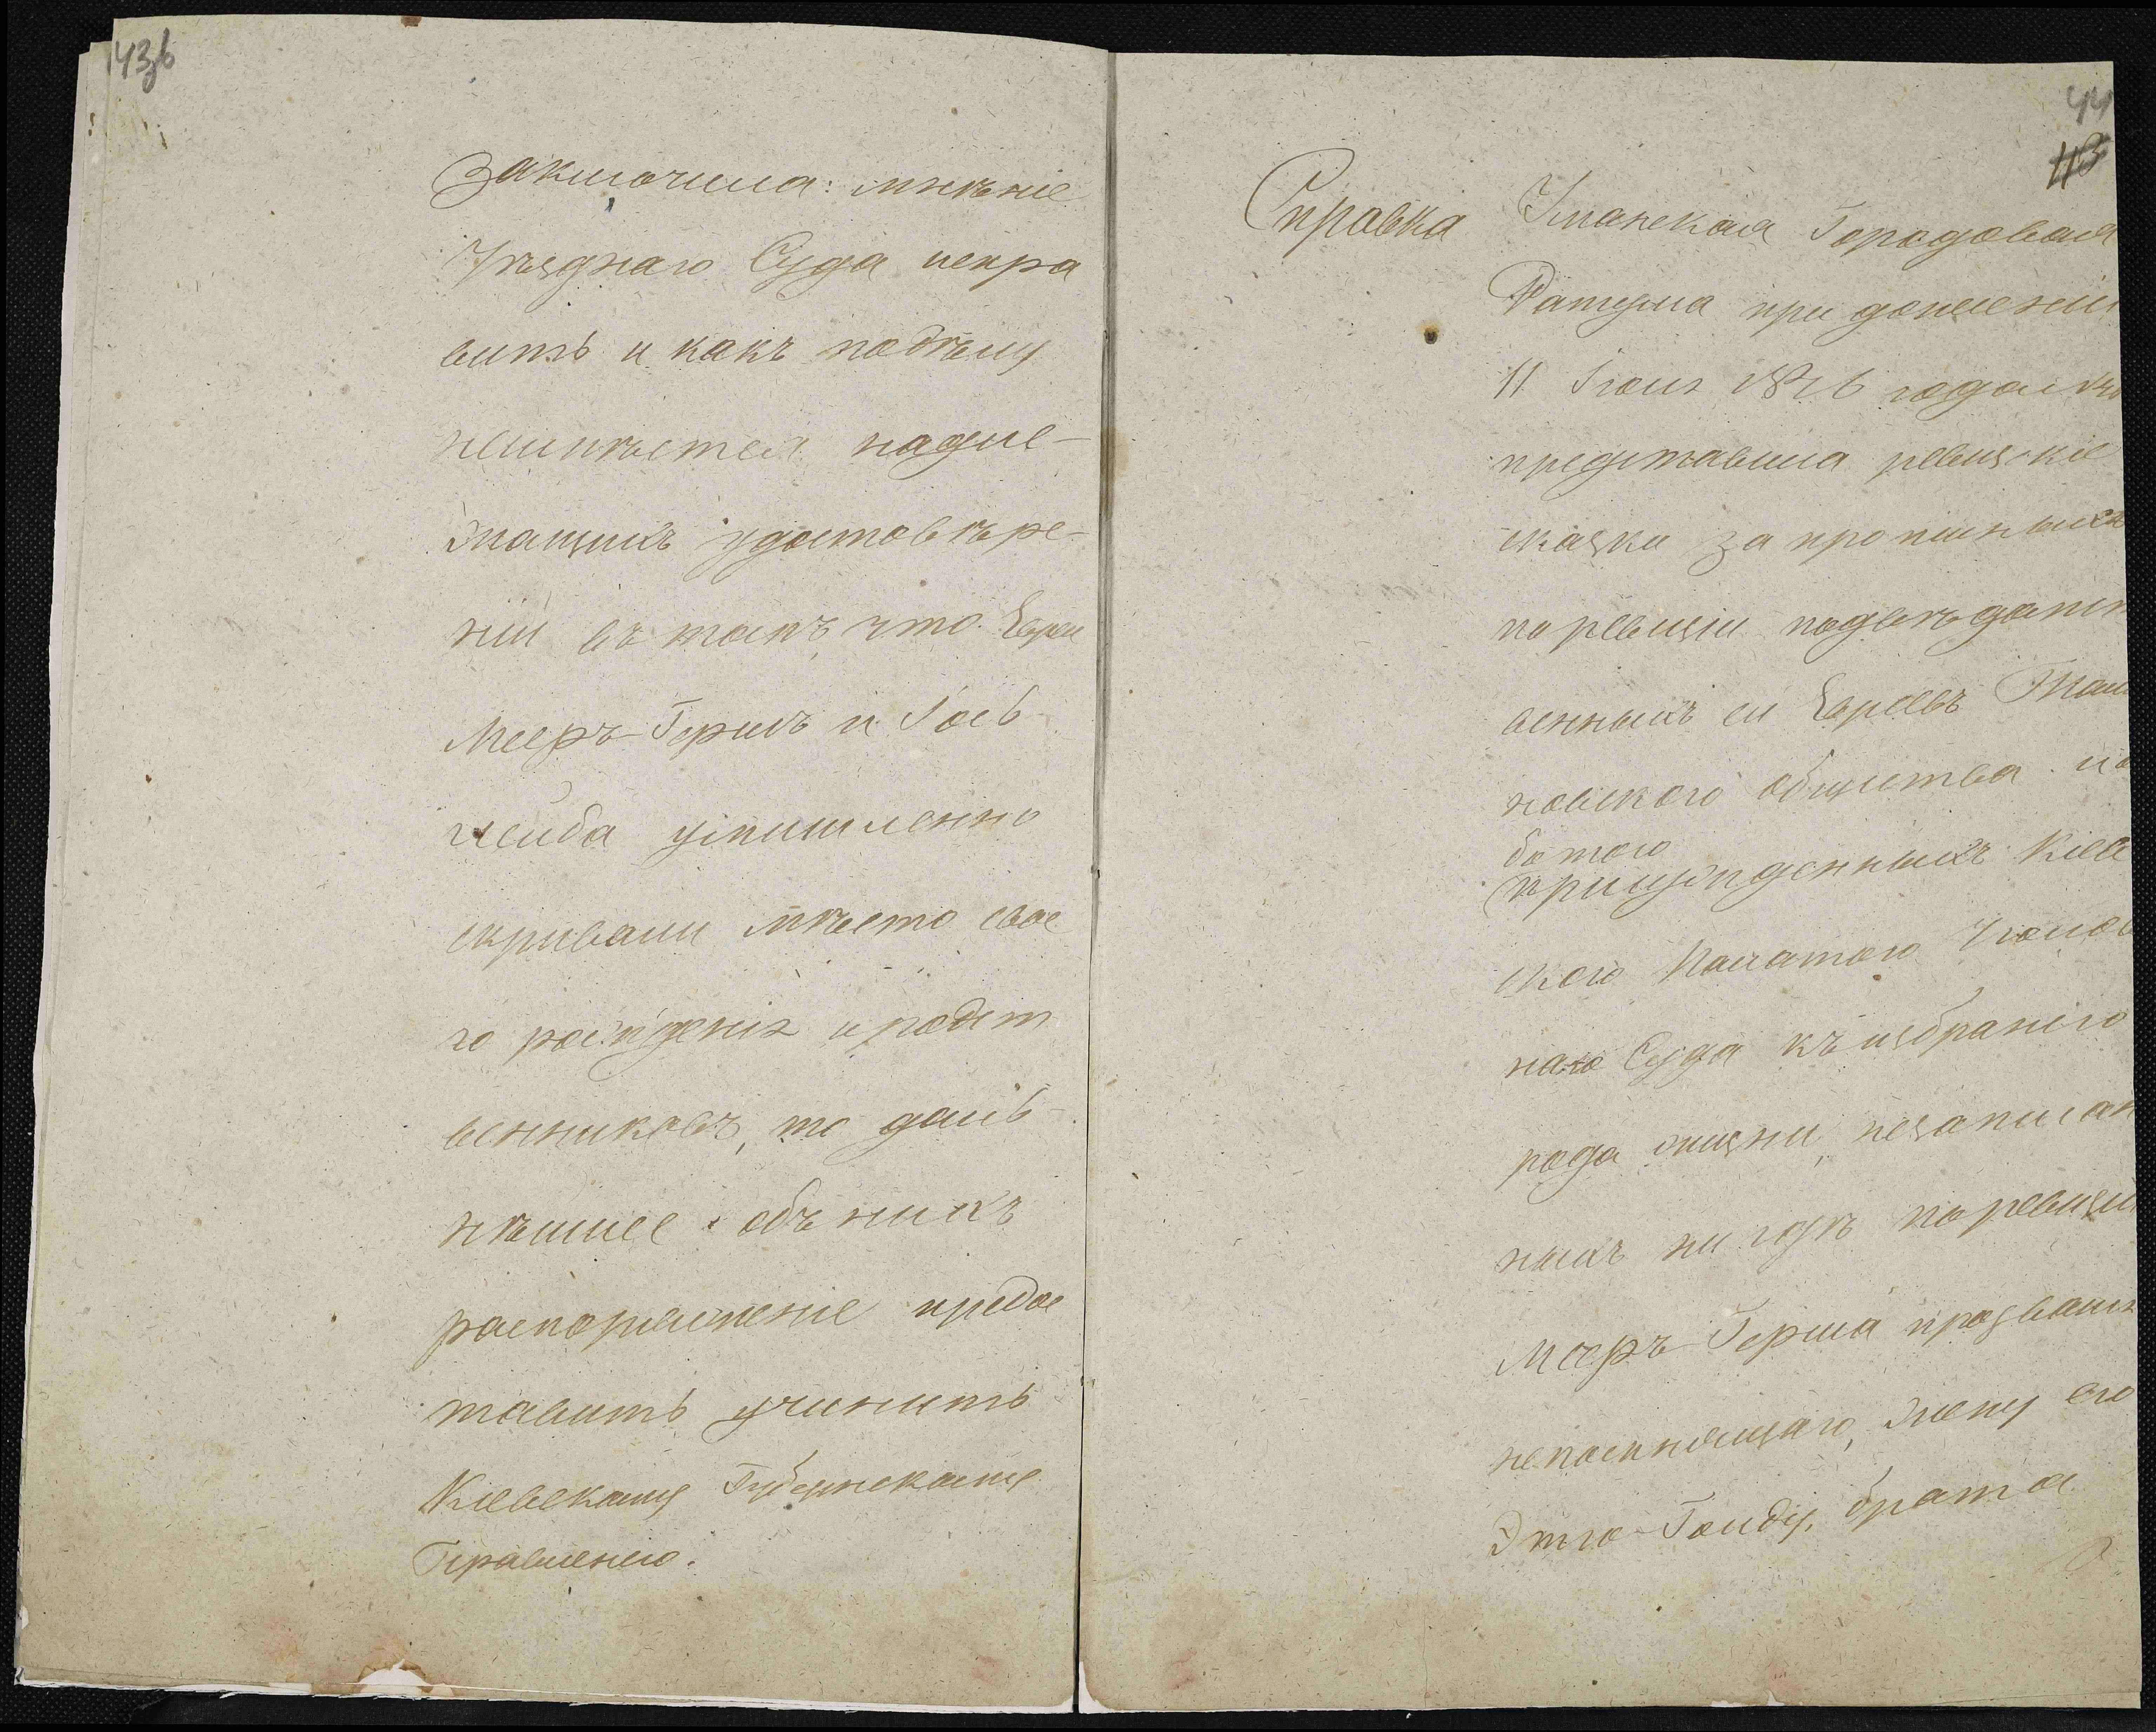 43б
заключила: мнѣніе
Уѣзднаго Суда испра
вить и какъ по дѣлу
не имѣется надле-
жащихъ удостовѣре-
ній въ томъ, что Евреи
Мееръ-Гершъ и Іось
Лейба умышленно
скрывали мѣсто свое
го рожденія и родст
венниковъ, то даль-
нѣйшее объ нихъ
распоряженіе предос
тавить учинить
Кіевскому Губернскому
Правленію.
44
Справка
Уманская Городовая
Ратуша при донесеніи
11 Іюля 1846 года
представила ревизскіе
сказки за пропиcныхъ
по ревизіи подвѣдомст
венныхъ ей Евреевъ
новскаго общества
принужденныхъ Кіев
скою Палатою Уголов
наго Суда къ избранію
рода жизни, не записан
ныхъ ни гдѣ по ревизіи
Мееръ-Герша прозванія
не помнящаго, жену его
Этю-Гольду, брата